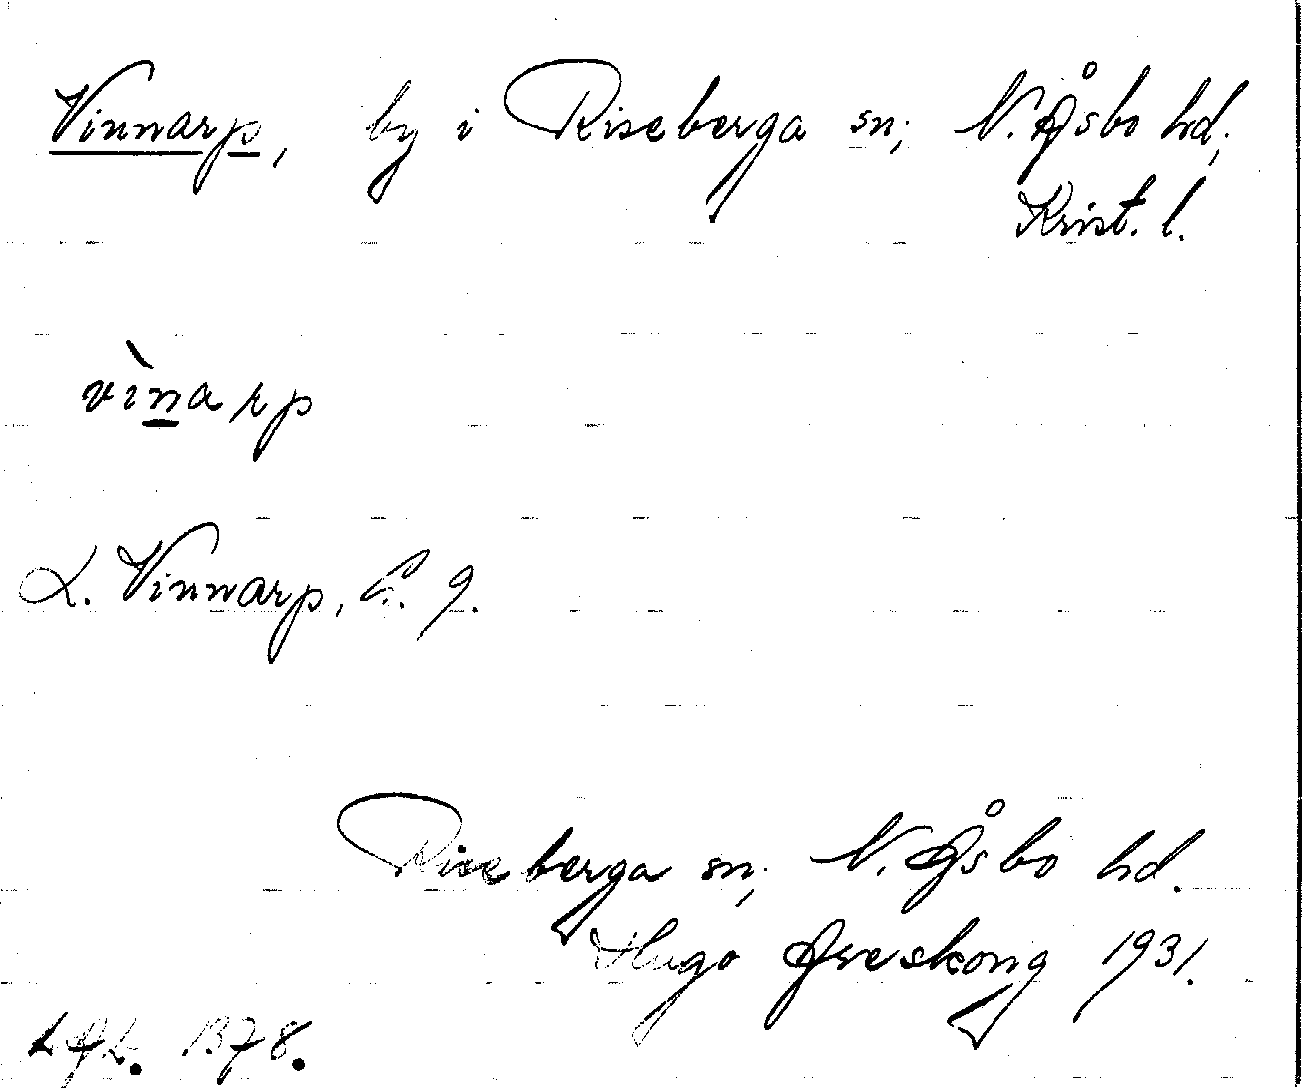 Vinnarp, by i Riseberga sn; N. Åsbo hd;
Krist. l.
vìnarp
L. Vinnarp, 9.
Riseberga sn; N. Åsbo hd.
Hugo Areskoug 1931.
1378.